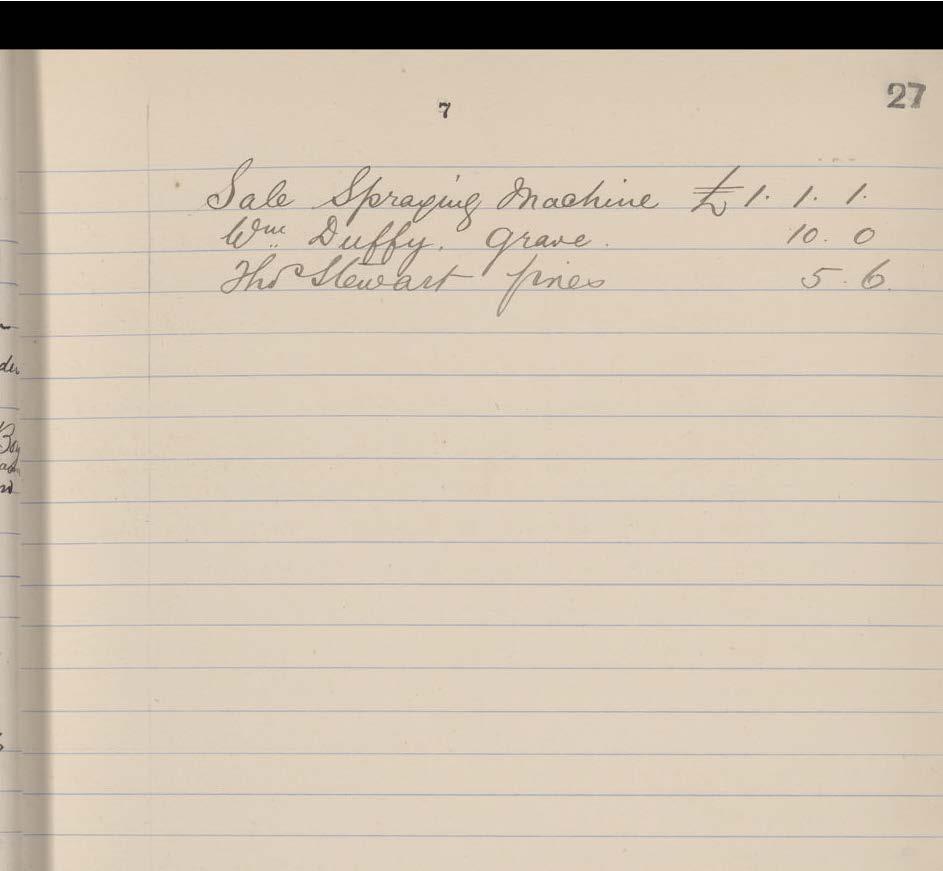 27
7
Sale Spraying Machine £1. 1. 1.
Wm Duffy. Grave. 10. 0
Thos Stewart fines 5. 6.